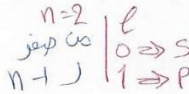 n=2
من صفر
ل n-1
l
0 => S
1 => P